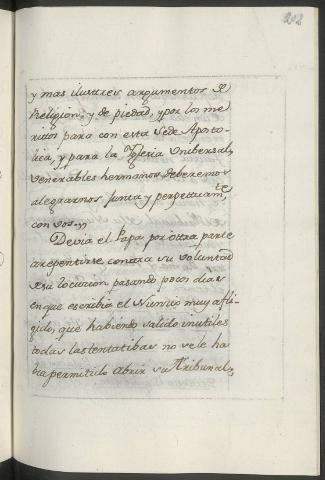 202
y mas ilustres argumentos de
Religion, y de piedad, y por los me
ritos para con esta Sede Aposto-
lica, y para la Yglesia Vnibersal,
venerables hermanos deberemos
alegrarnos Junta y perpetuamte
con vos.
Devia el Papa por otra parte
arrepentirse contra su voluntad
de su locucion pasando pocos dias
en que escribia el Nuncio muy afli-
gido, que habiendo salido inutiles
todas las tentatibas no se le ha
bia permitido Abrir su Tribunal,